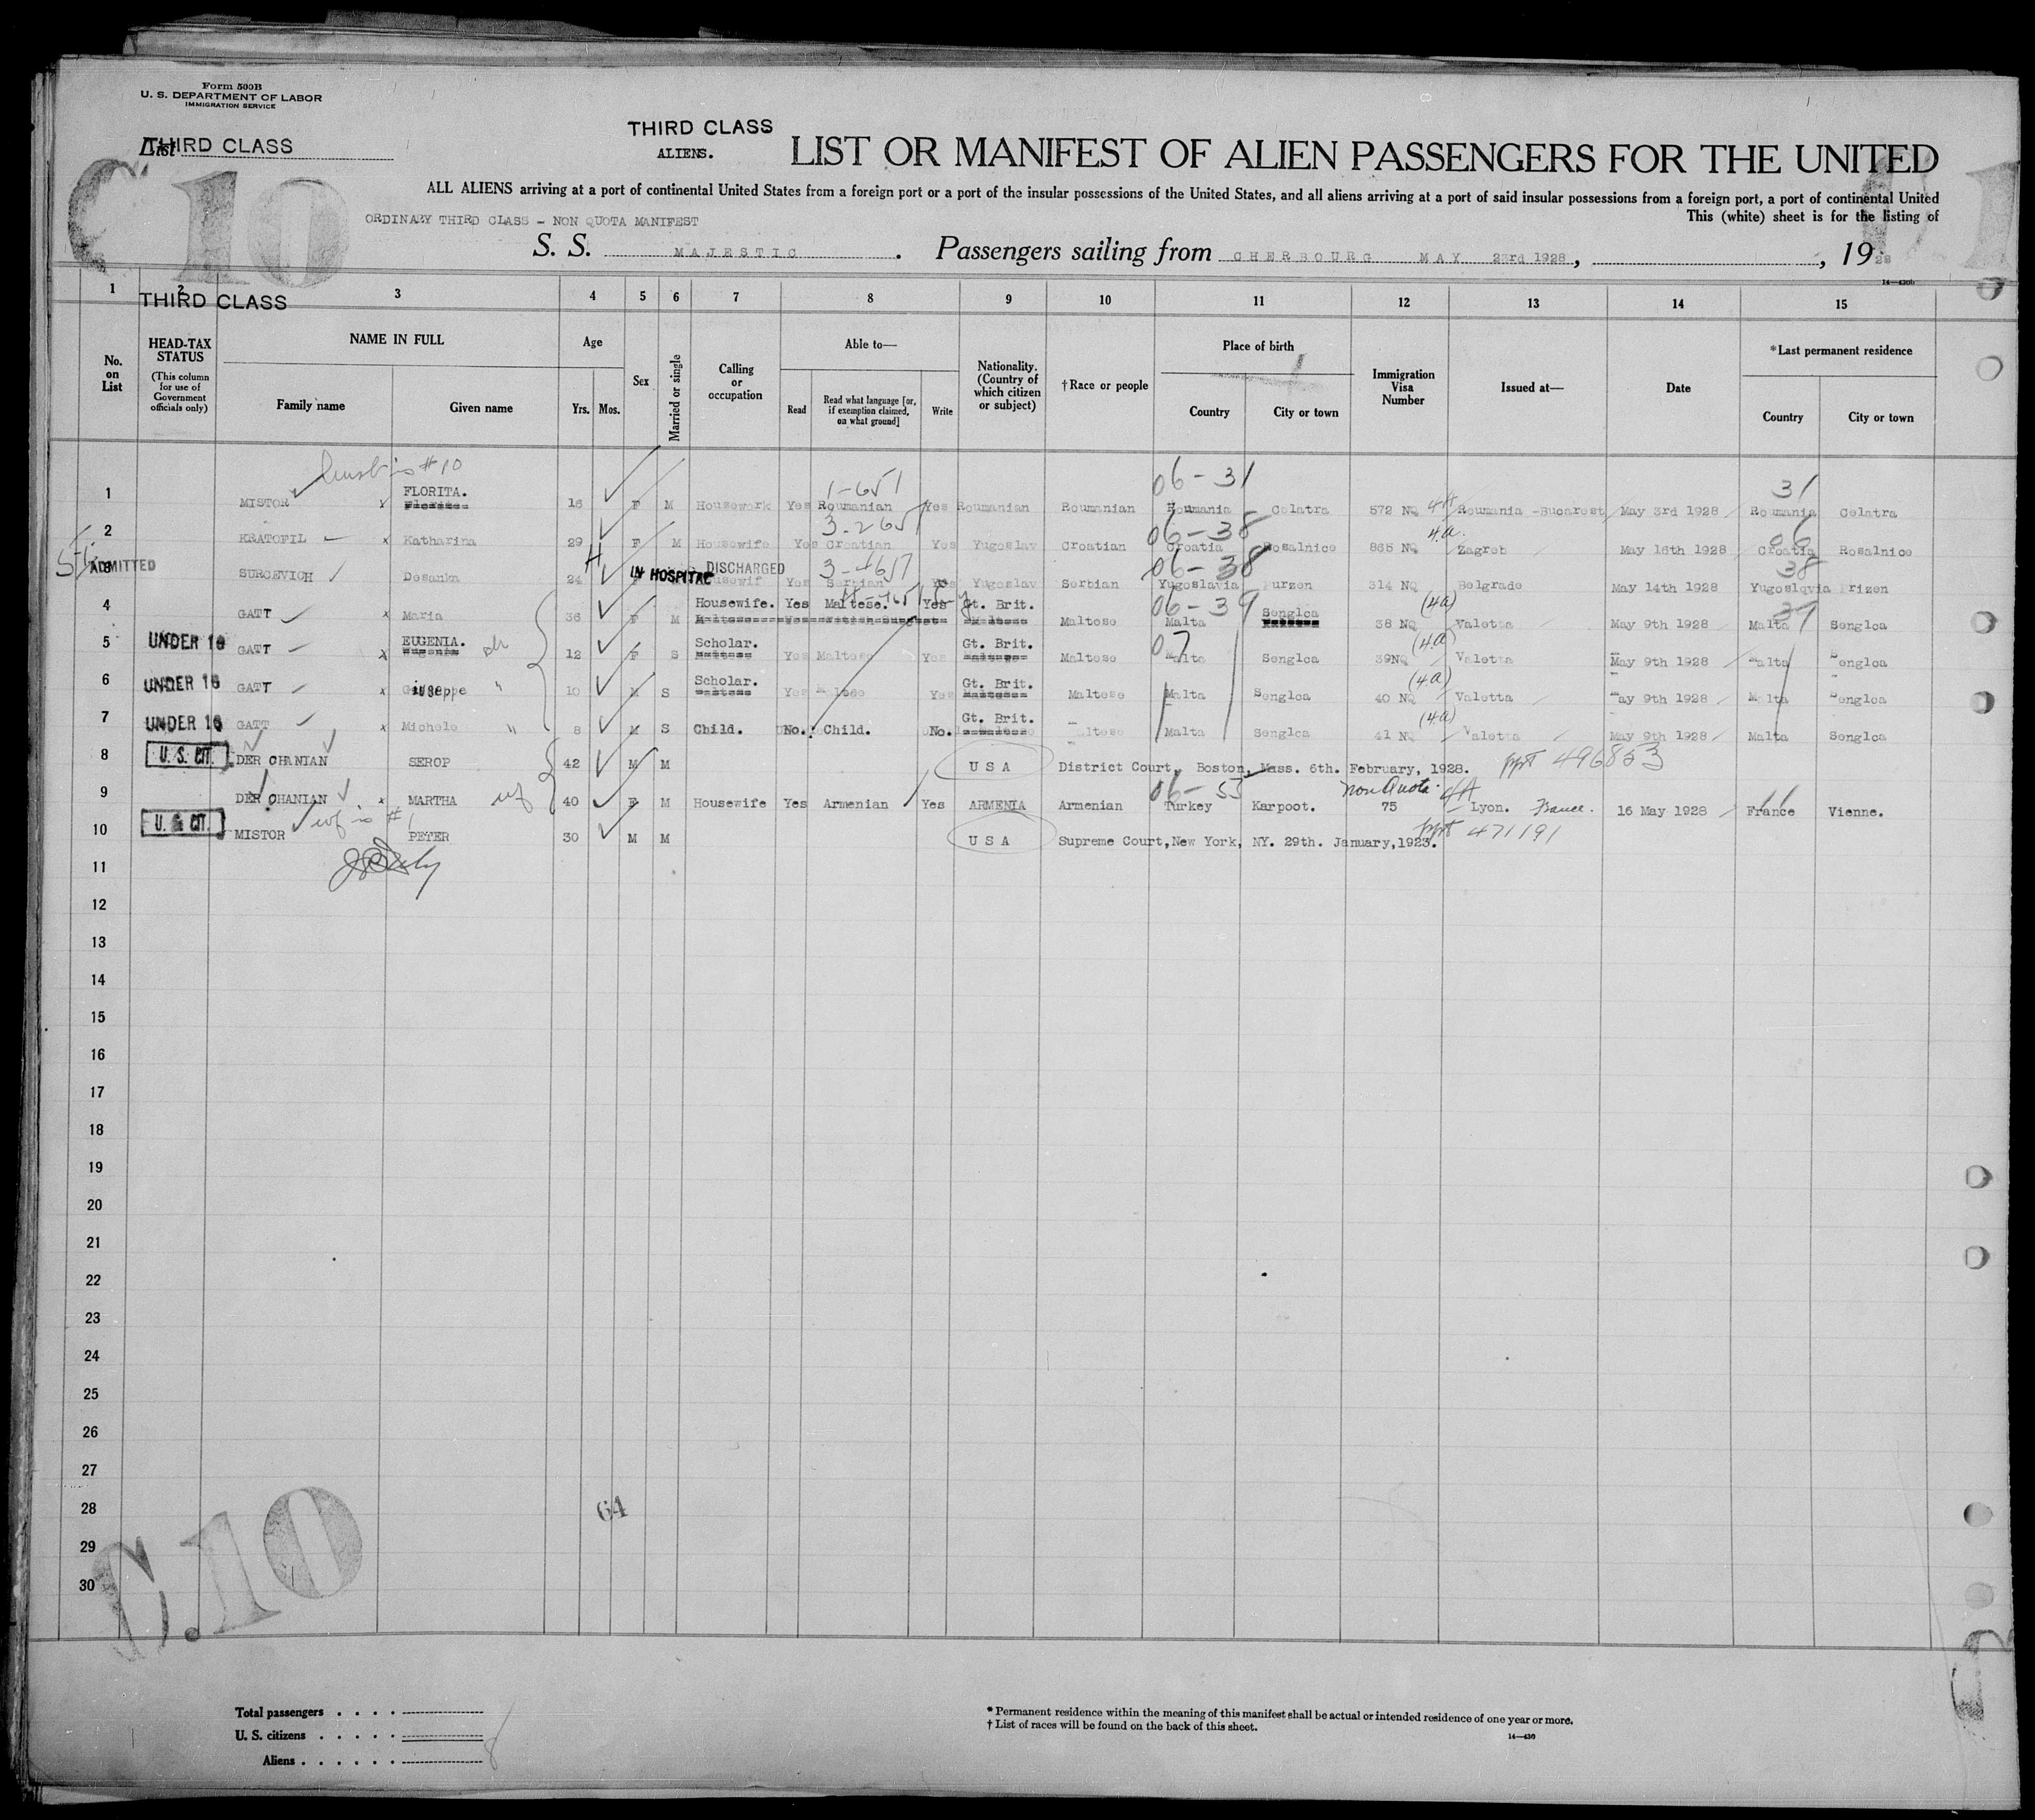 Form 500B
U. S. DEPARTMENT OF LABOR
IMMIGRATION SERVICE
THIRD CLASS
List THIRD CLASS
ALIENS.
LIST OR MANIFEST OF ALIEN PASSENGERS FOR THE UNITED
C 10
ALL ALIENS arriving at a port of continental United States from a foreign port or a port of the insular possessions of the United States, and all aliens arriving at a port of said insular possessions from a foreign port, a port of continental United
This (white) sheet is for the listing of
ORDINARY THIRD CLASS - NON QUOTA MANIFEST
S. S. MAJESTIC . Passengers sailing from CHERBOURG MAY 23rd 1928, , 1928
14—430b
1 2 3 4 5 6 7 8 9 10 11 12 13 14 15
THIRD CLASS
No. on List
HEAD-TAX STATUS (This column for use of Government officials only)
NAME IN FULL Family name Given name
Age Yrs. Mos.
Sex
Married or single
Calling or occupation
Able to— Read Read what language [or, if exemption claimed, on what ground] Write
Nationality. (Country of which citizen or subject)
†Race or people
Place of birth Country City or town
Immigration Visa Number
Issued at—
Date
*Last permanent residence Country City or town
husb is #10 1-651 06-31 31
1 MISTOR x FLORITA. 16 F M Housework Yes Roumanian Yes Roumanian Roumanian Roumania Celatra 572 NQ 4A Roumania -Bucarest May 3rd 1928 Roumania Celatra
3-265 06-38 4a. 06
2 KRATOFIL x Katharina 29 F M Housewife Yes Croatian Yes Yugoslav Croatian Croatia Rosalnice 865 NQ Zagreb May 16th 1928 Croatia Rosalnice
ADMITTED H IN HOSPITAL DISCHARGED 3-4651 06-38 38
3 SURCEVICH Desanka 24 Yes Serbian Yes Yugoslav Serbian Yugoslavia Purzen 314 NQ Belgrade May 14th 1928 Yugoslavia Prizen
06-39 (4a) 37
4 GATT x Maria 36 F M Housewife. Yes Maltese. Yes Gt. Brit. Maltese Malta Senglea 38 NQ Valetta May 9th 1928 Malta Senglea
07 (4a)
5 UNDER 16 GATT x EUGENIA. ch 12 F S Scholar. Yes Maltese Yes Gt. Brit. Maltese Malta Senglea 39NQ Valetta May 9th 1928 Malta Senglea
(4a)
6 UNDER 16 GATT x Giuseppe " 10 M S Scholar. Yes Maltese Yes Gt. Brit. Maltese Malta Senglea 40 NQ Valetta May 9th 1928 Malta Senglea
(4a)
7 UNDER 16 GATT x Michele " 8 M S Child. No. Child. No. Gt. Brit. Maltese Malta Senglea 41 NQ Valetta May 9th 1928 Malta Senglea
8 U. S. CIT. DER OHANIAN SEROP 42 M M USA District Court, Boston, Mass. 6th. February, 1928. ppt 496853
06-53 non Quota. 4A 11
9 DER OHANIAN x MARTHA wf 40 F M Housewife Yes Armenian Yes ARMENIA Armenian Turkey Karpoot. 75 Lyon. France. 16 May 1928 France Vienne.
wf is #1 ppt 471191
10 U. S. CIT. MISTOR PETER 30 M M USA Supreme Court, New York, NY. 29th. January, 1923.
11
12
13
14
15
16
17
18
19
20
21
22
23
24
25
26
27
28 64
29
30
C.10
Total passengers . . . .
U. S. citizens . . . . .
Aliens . . . . . .
* Permanent residence within the meaning of this manifest shall be actual or intended residence of one year or more.
† List of races will be found on the back of this sheet.
14—430